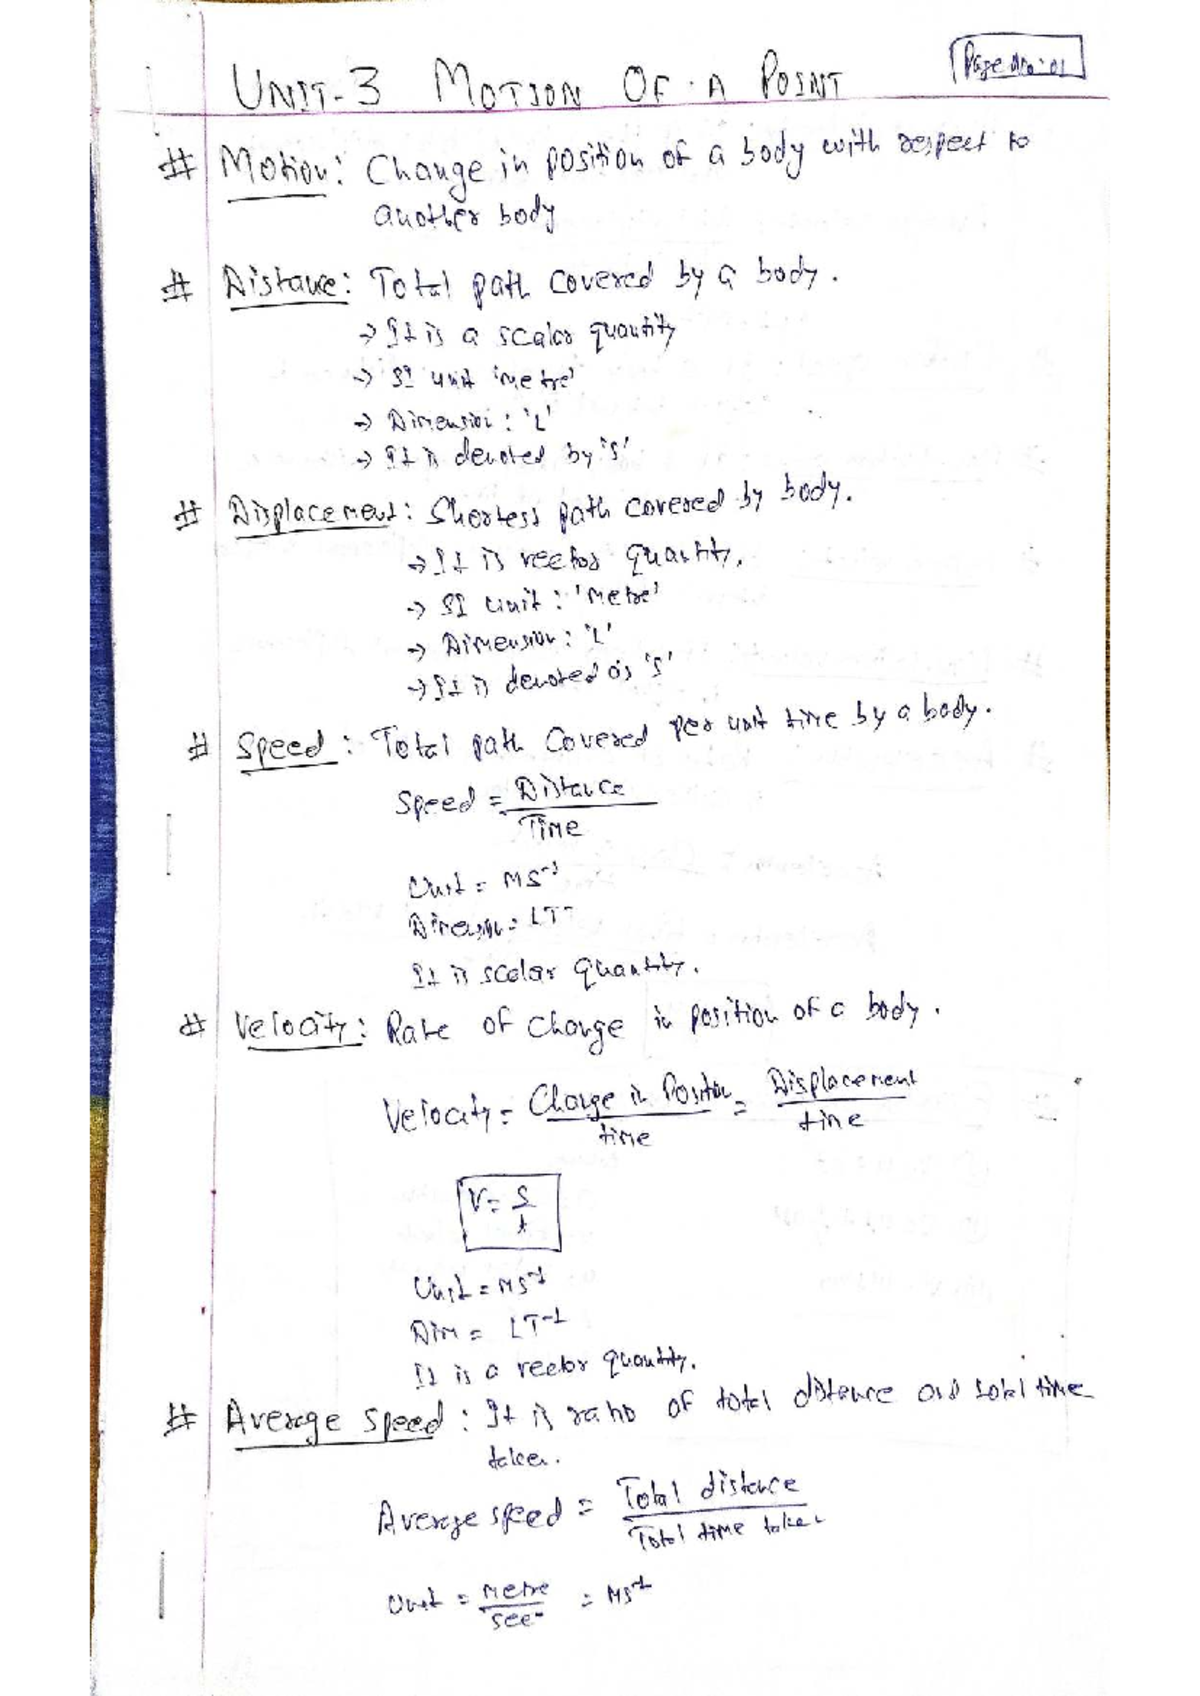 Page No: 01
UNIT-3 MOTION OF A POINT
# Motion: Change in position of a body with respect to
another body
# Distance: Total path covered by a body.
→ It is a scalar quantity
→ SI unit 'metre'
→ Dimension: 'L'
→ It is denoted by 's'
# Displacement: Shortest path covered by body.
→ It is vector quantity.
→ SI unit: 'Metre'
→ Dimension: 'L'
→ It is denoted as 's'
# Speed: Total path covered per unit time by a body.
Speed = Distance
Time
Unit = MS⁻¹
Dimension = LT
It is scalar quantity.
# Velocity: Rate of change in position of a body.
Velocity = Change in Position = Displacement
time time
V = S
t
Unit = MS⁻¹
Dim = LT⁻¹
It is a vector quantity.
# Average speed: It is ratio of total distance and total time
taken.
Average speed = Total distance
Total time taken
Unit = Metre = MS⁻¹
sec